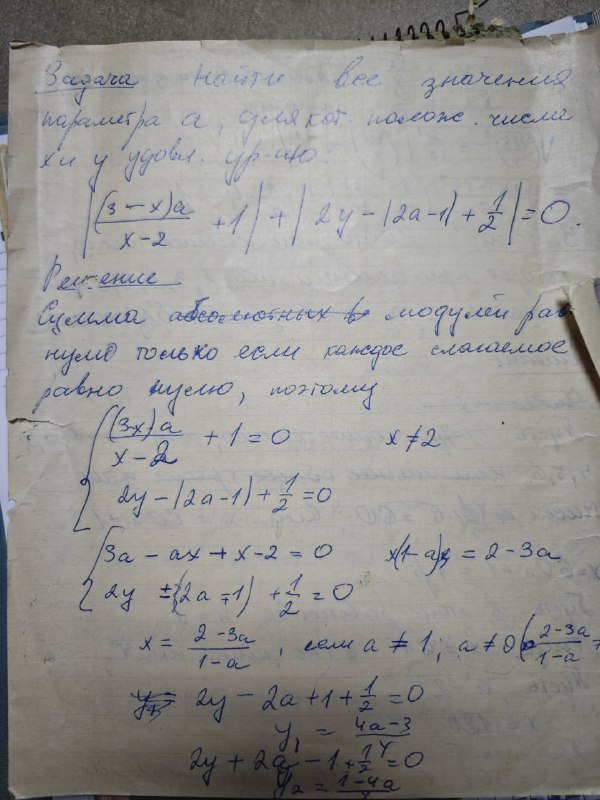 Задача Найти все значения
параметра a, для кот. полож. числа
x и y удовл. ур-ию:
|(3-x)a/(x-2) + 1| + |2y - |2a-1| + 1/2| = 0.
Решение
Сумма модулей рав
нулю только если каждое слагаемое
равно нулю, поэтому
{ (3-x)a/(x-2) + 1 = 0 x ≠ 2
2y - |2a-1| + 1/2 = 0
{ 3a - ax + x - 2 = 0 x(1-a) = 2-3a
2y ± (2a-1) + 1/2 = 0
x = (2-3a)/(1-a), если a ≠ 1; a ≠ 0 ((2-3a)/(1-a) ≠
2y - 2a + 1 + 1/2 = 0
y₁ = (4a-3)/4
2y + 2a - 1 + 1/2 = 0
y₂ = (1-4a)/